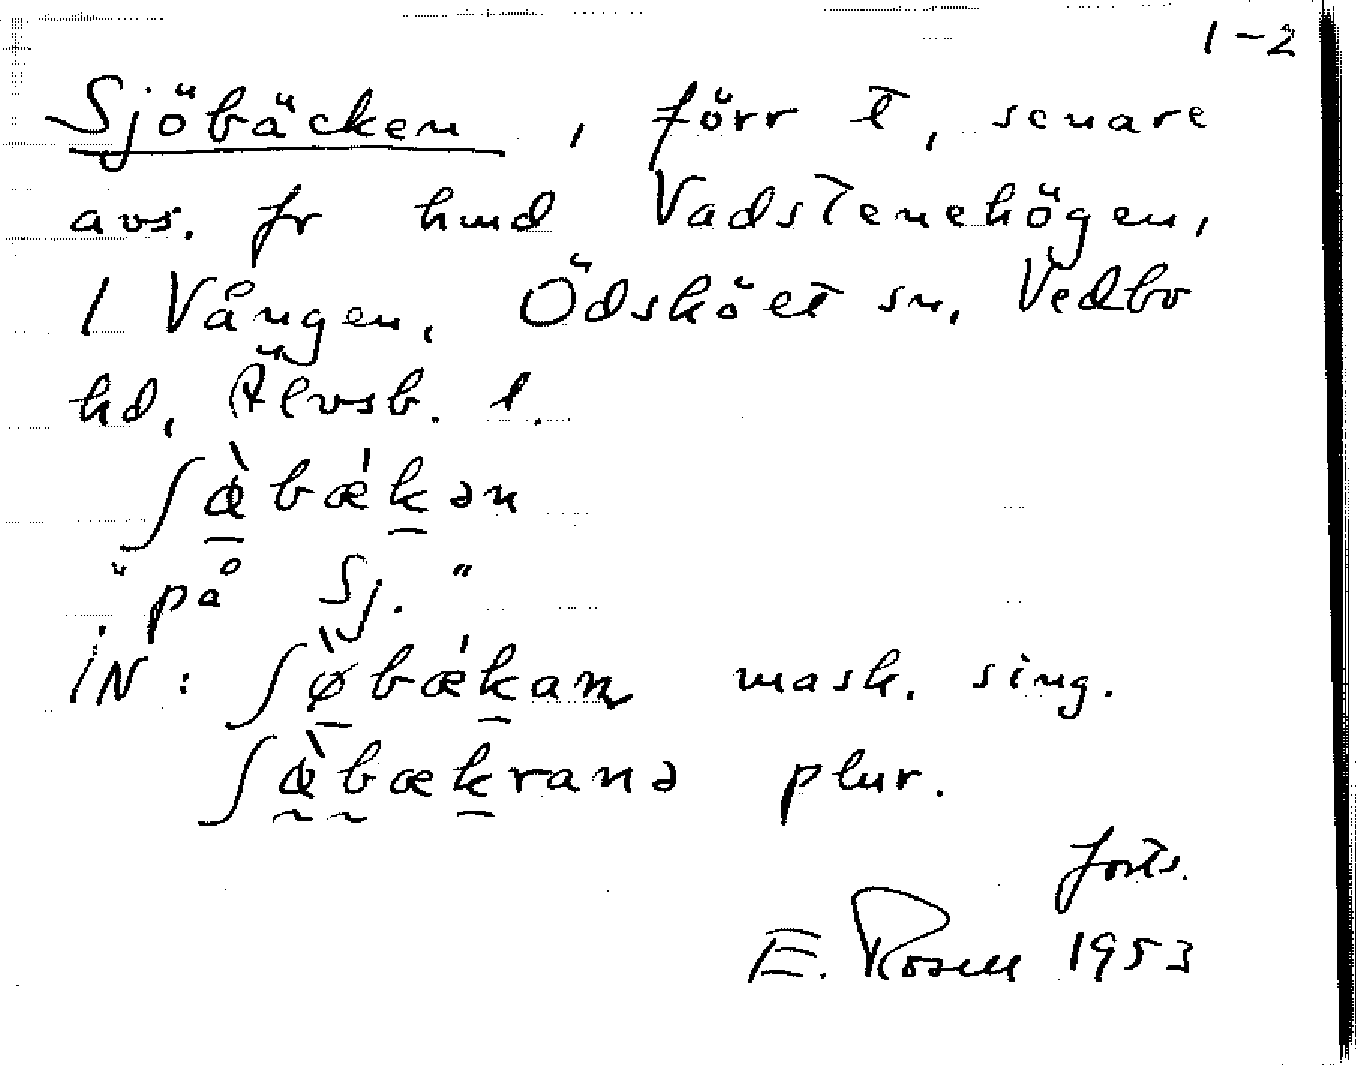 1-2
Sjöbäcken, förr t, senare
avs. fr hmd Vadstenehögen,
1 Vången, Ödsköelt sn, Vedbo
hd, Älvsb. l.
ʃæ̀bækən
"på Sj."
iN: ʃø̀bækan mask. sing.
ʃæ̀bækranə plur.
forts.
E. Rosell 1953